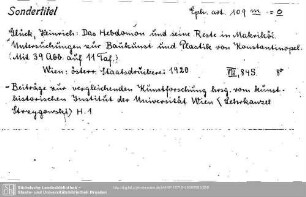 Sondertitel
Eph. art. 109 m : 0
Glück, Heinrich: Das Hebdomon und seine Reste in Makriköi.
Untersuchungen zur Baukunst und Plastik von Konstantinopel.
(Mit 39 Abb. auf 11 Taf.)
Wien: österr. Staatsdruckerei 1920 VII, 84 S. 8°
- Beiträge zur vergleichenden Kunstforschung hrsg. vom kunst-
historischen Institut der Universität Wien (Lehrkanzel
Strzygowski) H. 1
Sächsische Landesbibliothek -
Staats- und Universitätsbibliothek Dresden